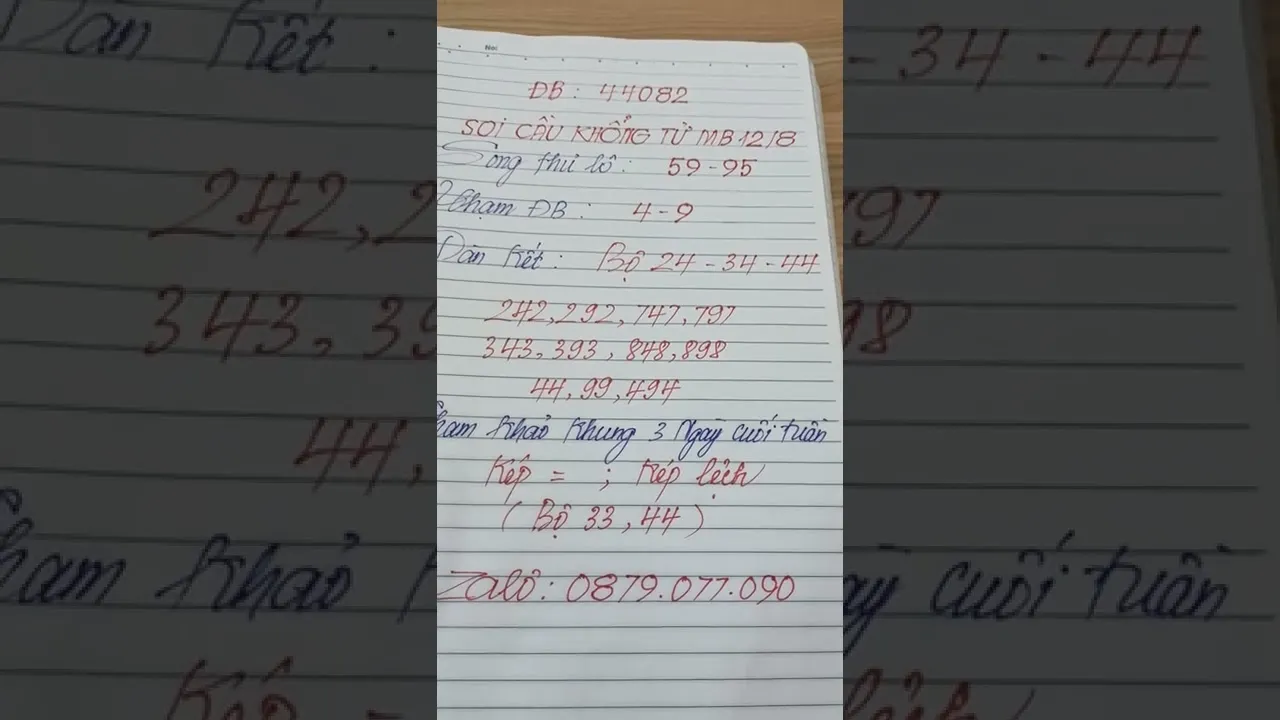 No:
ĐB: 44082
SOI CẦU KHỔNG TỬ MB 12/8
Song thủ lô: 59-95
Chạm ĐB: 4-9
Dàn kết: Bộ 24-34-44
242,292,747,797
343,393,848,898
44,99,494
Tham khảo khung 3 Ngày cuối tuần
Kép = ; Kép lệch
(Bộ 33,44)
Zalô: 0879.077.090